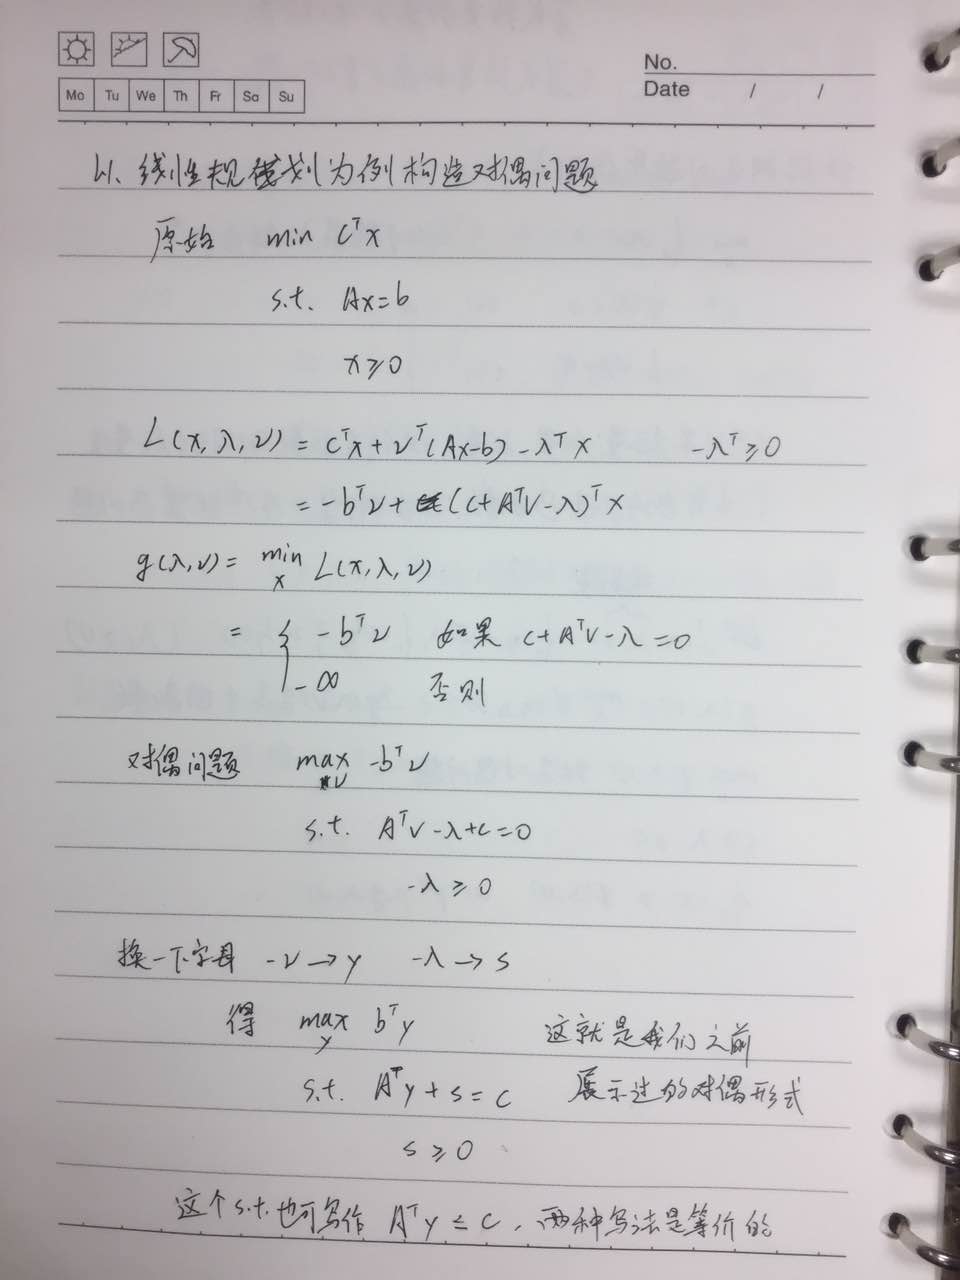 No.
Date / /
Mo Tu We Th Fr Sa Su
以线性规划为例构造对偶问题
原始 min cᵀx
s.t. Ax=b
x≥0
L(x,λ,ν) = cᵀx+νᵀ(Ax-b)-λᵀx -λᵀ≥0
= -bᵀν+(c+Aᵀν-λ)ᵀx
g(λ,ν)= min L(x,λ,ν)
x
= { -bᵀν 如果 c+Aᵀν-λ=0
-∞ 否则
对偶问题 max -bᵀν
ν
s.t. Aᵀν-λ+c=0
-λ≥0
换一下字母 -ν→y -λ→s
得 max bᵀy 这就是我们之前
y
s.t. Aᵀy+s=c 展示过的对偶形式
s≥0
这个s.t.也可写作 Aᵀy≤c,两种写法是等价的